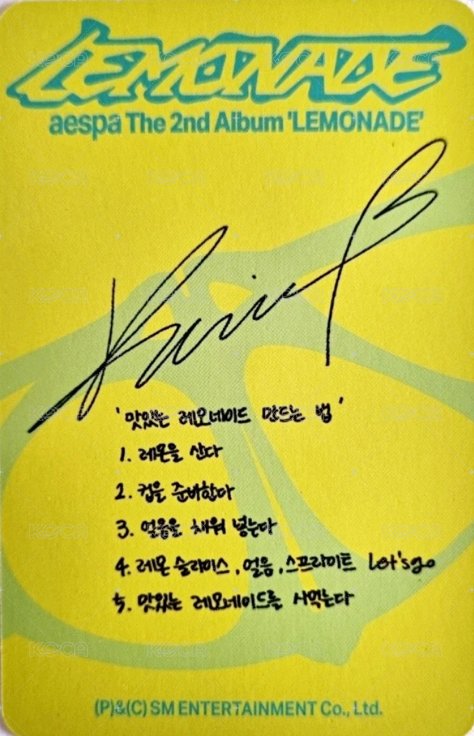 LEMONADE
aespa The 2nd Album 'LEMONADE'
'맛있는 레모네이드 만드는 법'
1. 레몬을 산다
2. 컵을 준비한다
3. 얼음을 채워 넣는다
4. 레몬 슬라이스, 얼음, 스프라이트 Let's go
5. 맛있는 레모네이드를 사먹는다
(P)&(C) SM ENTERTAINMENT Co., Ltd.